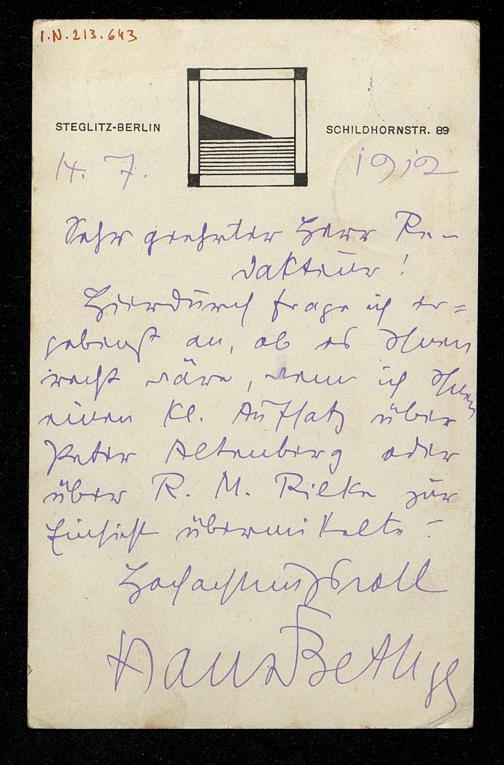 I.N. 213.643
STEGLITZ-BERLIN
SCHILDHORNSTR. 89
14. 7. 1912
Sehr geehrter Herr Re-
dakteur!
Hierdurch frage ich er=
gebenst an, ob es Ihnen
recht wäre, wenn ich Ihnen
einen kl. Aufsatz über
Peter Altenberg oder
über R. M. Rilke zur
Einsicht übermittelte?
Hochachtungsvoll
Hans Bethge